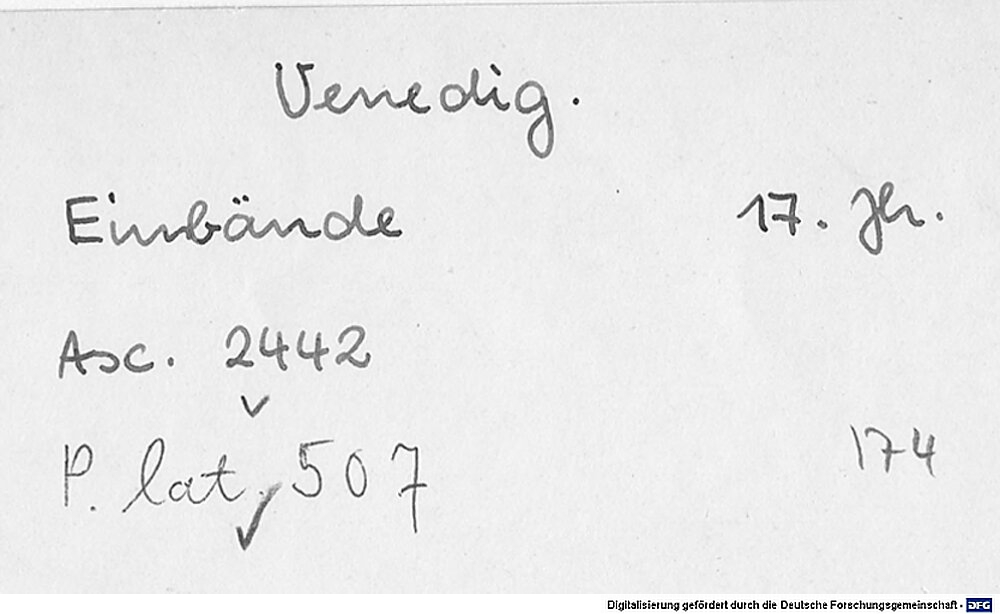 Venedig.
Einbände 17. Jh.
Asc. 2442
✓
P. lat. 507 174
✓
Digitalisierung gefördert durch die Deutsche Forschungsgemeinschaft - DFG